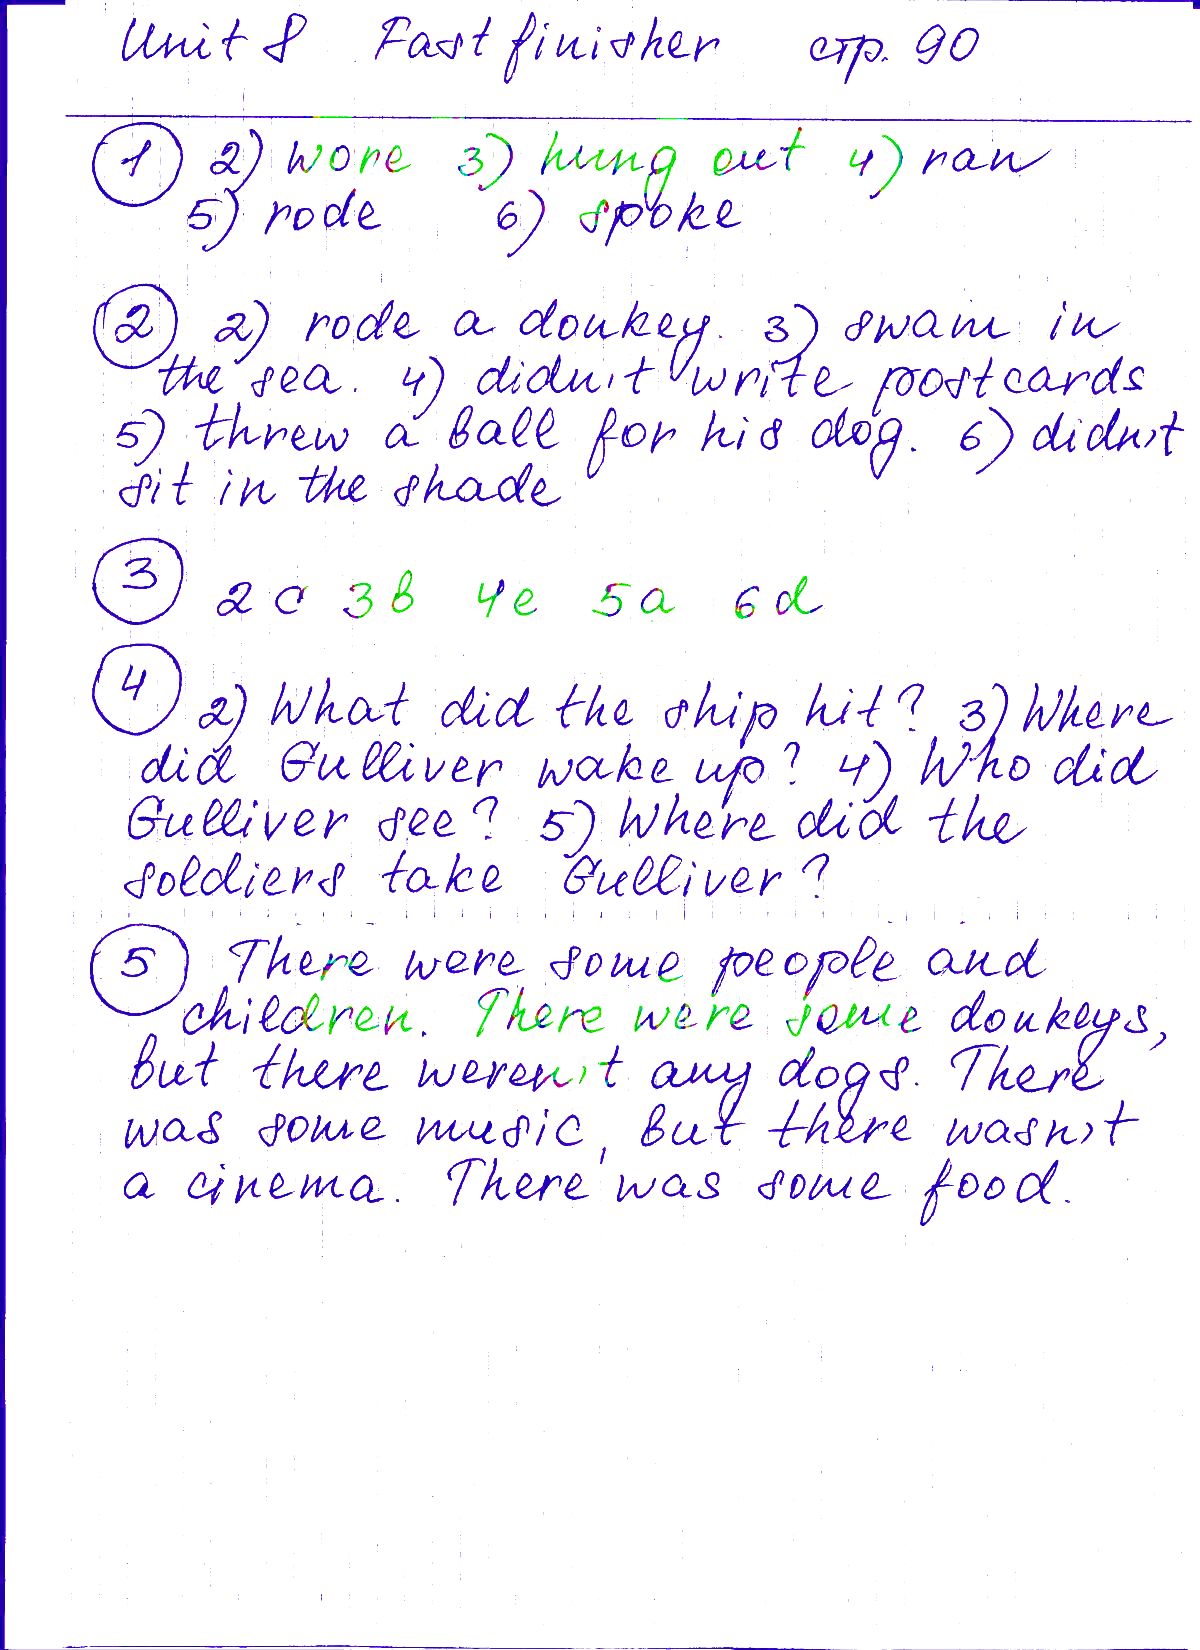 Unit 8 Fast finisher стр. 90
1 2) wore 3) hung out 4) ran
5) rode 6) spoke
2 2) rode a donkey. 3) swam in
the sea. 4) didn't write postcards
5) threw a ball for his dog. 6) didn't
sit in the shade
3 2 c 3 b 4 e 5 a 6 d
4 2) What did the ship hit? 3) Where
did Gulliver wake up? 4) Who did
Gulliver see? 5) Where did the
soldiers take Gulliver?
5 There were some people and
children. There were some donkeys,
but there weren't any dogs. There
was some music, but there wasn't
a cinema. There was some food.